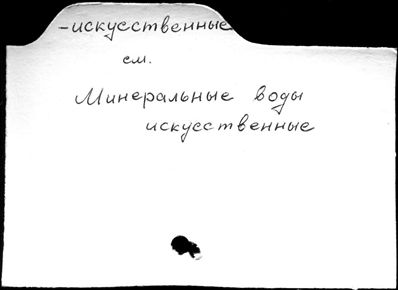 -искусственные
см.
Минеральные воды
искусственные